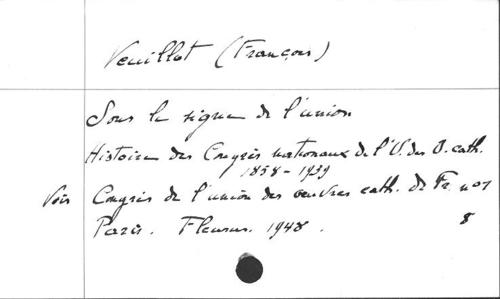 Veuillot (François)
Sous le signe de l'union
Histoire des Congrès nationaux de l'U. des O. cath.
1858-1939
Voir Congrès de l'union des oeuvres cath. de Fr. nos
Paris. Fleurus. 1948. 8